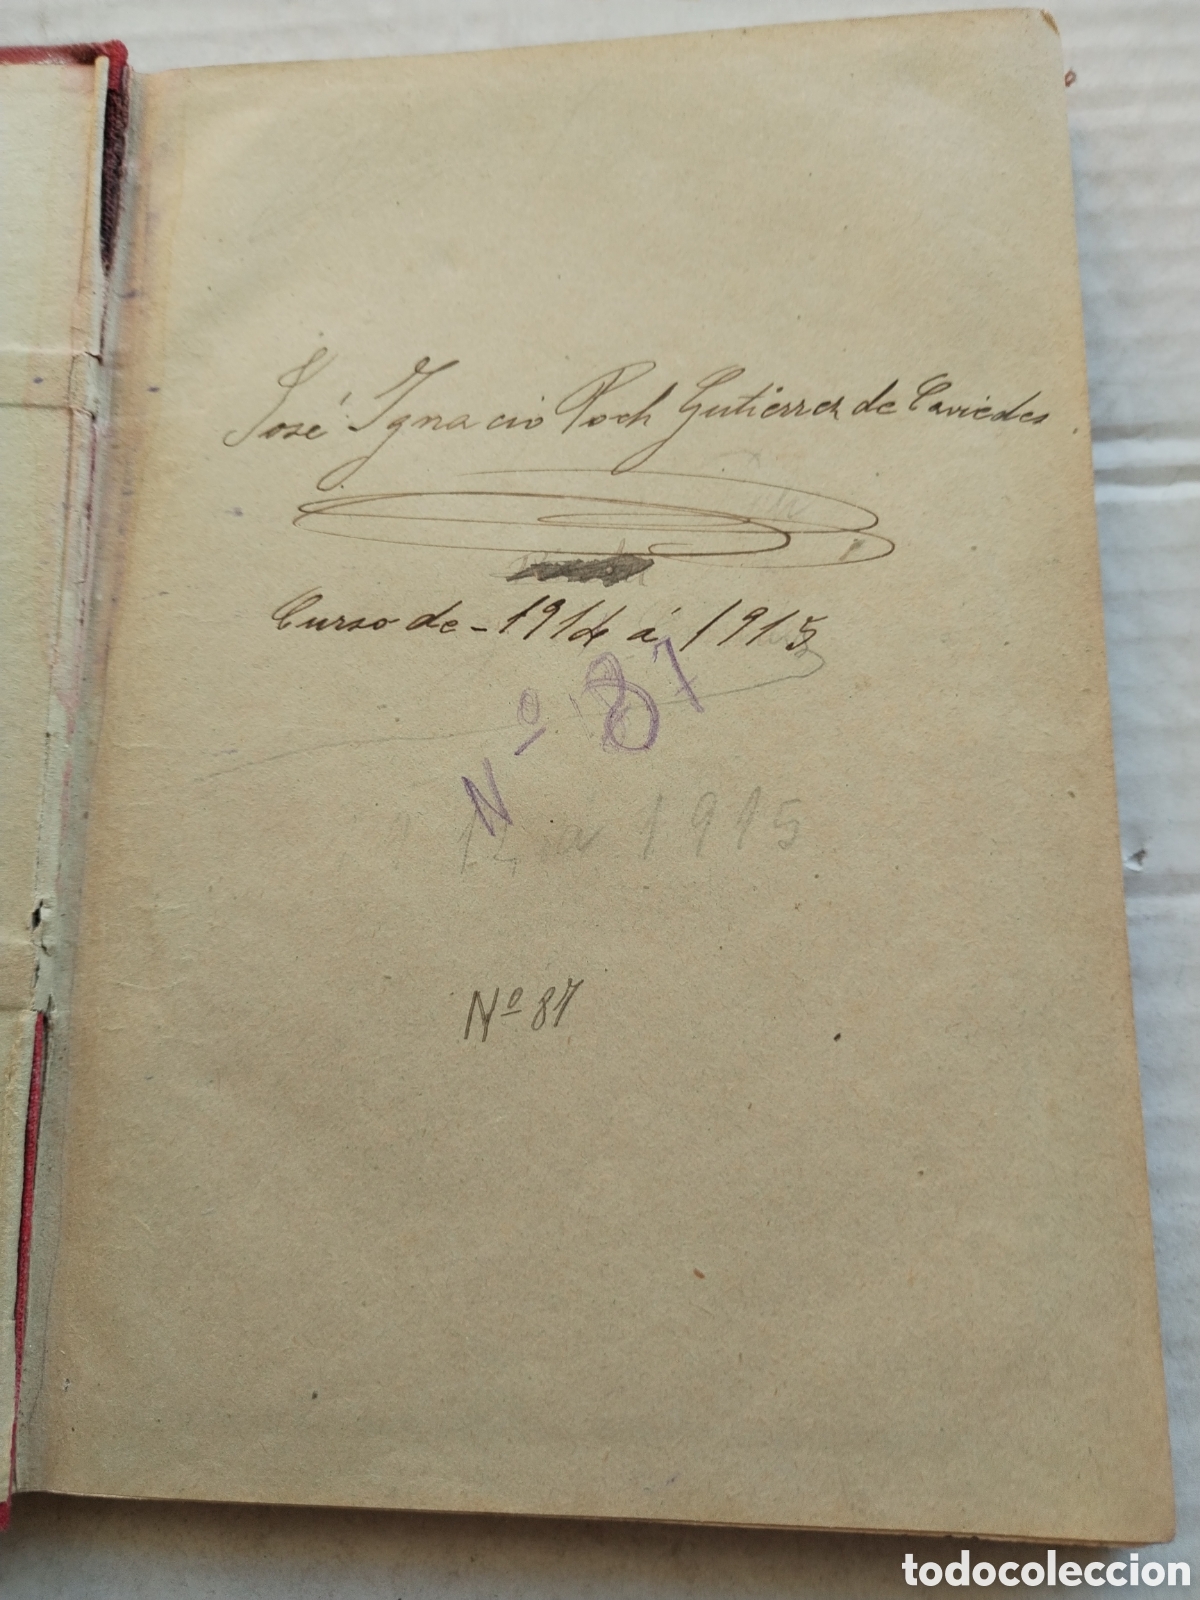 José Ignacio Poch Gutierrez de Caviedes.
Curso de - 1914 á 1915
Nº 87
á 1915
Nº 87
todocoleccion